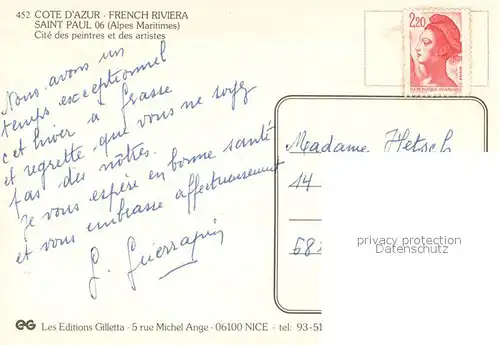 452 COTE D'AZUR - FRENCH RIVIERA
SAINT PAUL 06 (Alpes Maritimes)
Cité des peintres et des artistes
2,20
REPUBLIQUE FRANÇAISE
Nous avons un
temps exceptionnel
cet hiver à Grasse
et regrette que vous ne soyez
pas des nôtres.
Je vous espère en bonne santé
et vous embrasse affectueusement
G.
Madame Hetsch
14
68
privacy protection
Datenschutz
EG Les Editions Gilletta - 5 rue Michel Ange - 06100 NICE - tel: 93-51